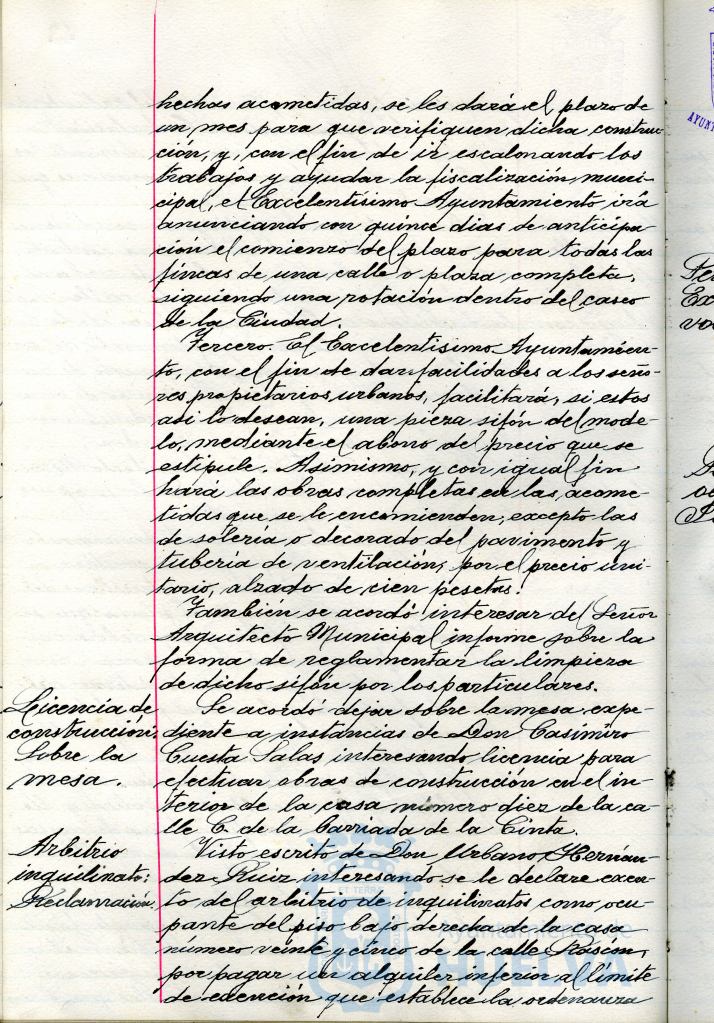 hechas acometidas, se les dará el plazo de
un mes para que verifiquen dicha construc-
ción, y, con el fin de ir escalonando los
trabajos y ayudar la fiscalización muni-
cipal, el Excelentísimo Ayuntamiento irá
anunciando con quince dias de anticipa-
ción el comienzo del plazo para todas las
fincas de una calle o plaza completa,
siguiendo una rotación dentro del casco
de la Ciudad.
Tercero. El Excelentísimo Ayuntamien-
to, con el fin de dar facilidades a los seño-
res propietarios urbanos, facilitará, si estos
asi lo desean, una pieza sifón del mode-
lo, mediante el abono del precio que se
estipule. Asimismo, y con igual fin
hará las obras completas en las acome-
tidas que se le encomienden, excepto las
de solería o decorado del pavimento y
tubería de ventilación, por el precio uni-
tario, alzado de cien pesetas.
También se acordó interesar del Señor
Arquitecto Municipal informe sobre la
forma de reglamentar la limpieza
de dicho sifón por los particulares.
Licencia de
construcción.
Sobre la
mesa.
Se acordó dejar sobre la mesa expe-
diente a instancias de Don Casimiro
Cuesta Salas interesando licencia para
efectuar obras de construcción en el in-
terior de la casa número diez de la ca-
lle C. de la barriada de la Cinta.
Arbitrio
inquilinato:
Reclamación.
Visto escrito de Don Urbano Hernán-
dez Ruiz interesando se le declare exen-
to del arbitrio de inquilinatos como ocu-
pante del piso bajo derecha de la casa
número veinte y cinco de la calle Rascón,
por pagar un alquiler inferior al límite
de exención que establece la ordenanza
ET TERRÆ
Ayuntamiento de
HUELVA